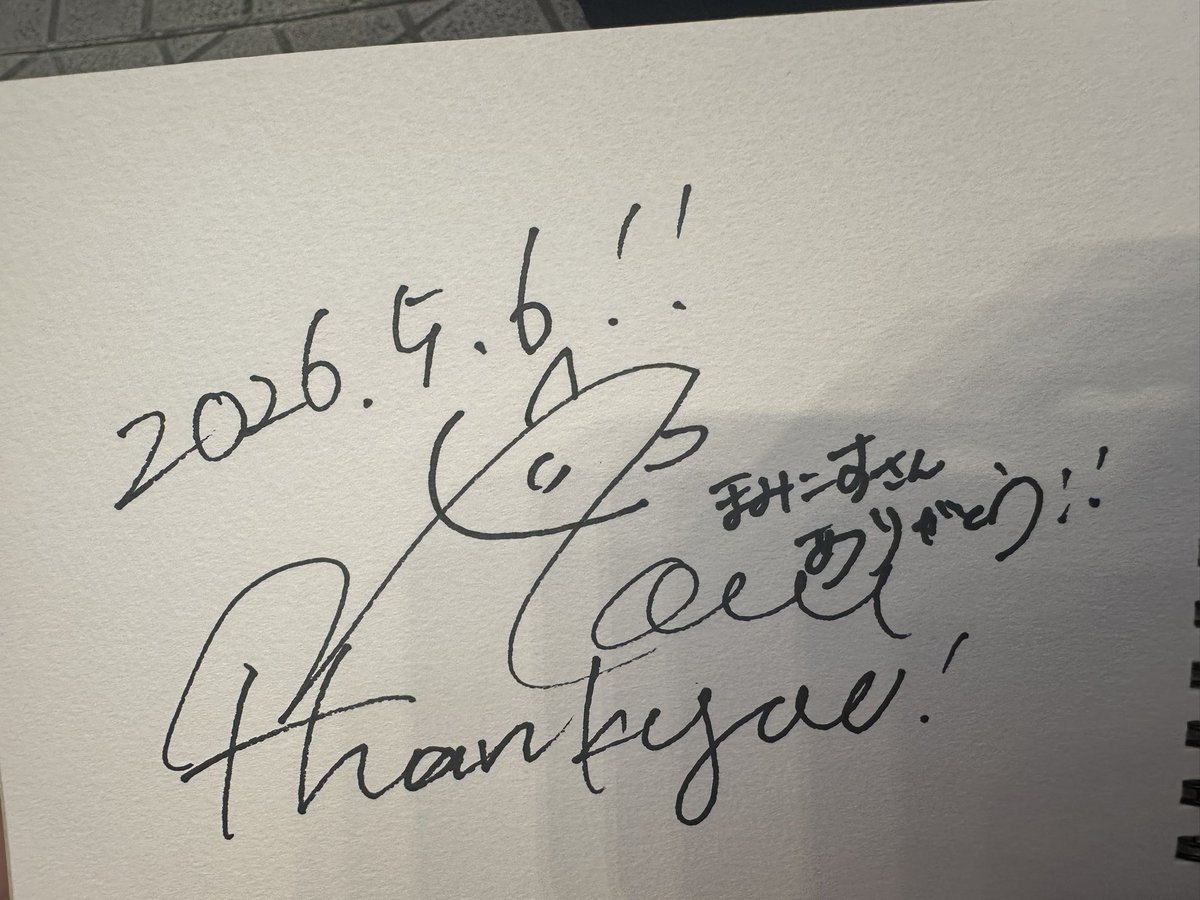 2026.5.6!!
まみこすさん
ありがとう!!
Thankyou!